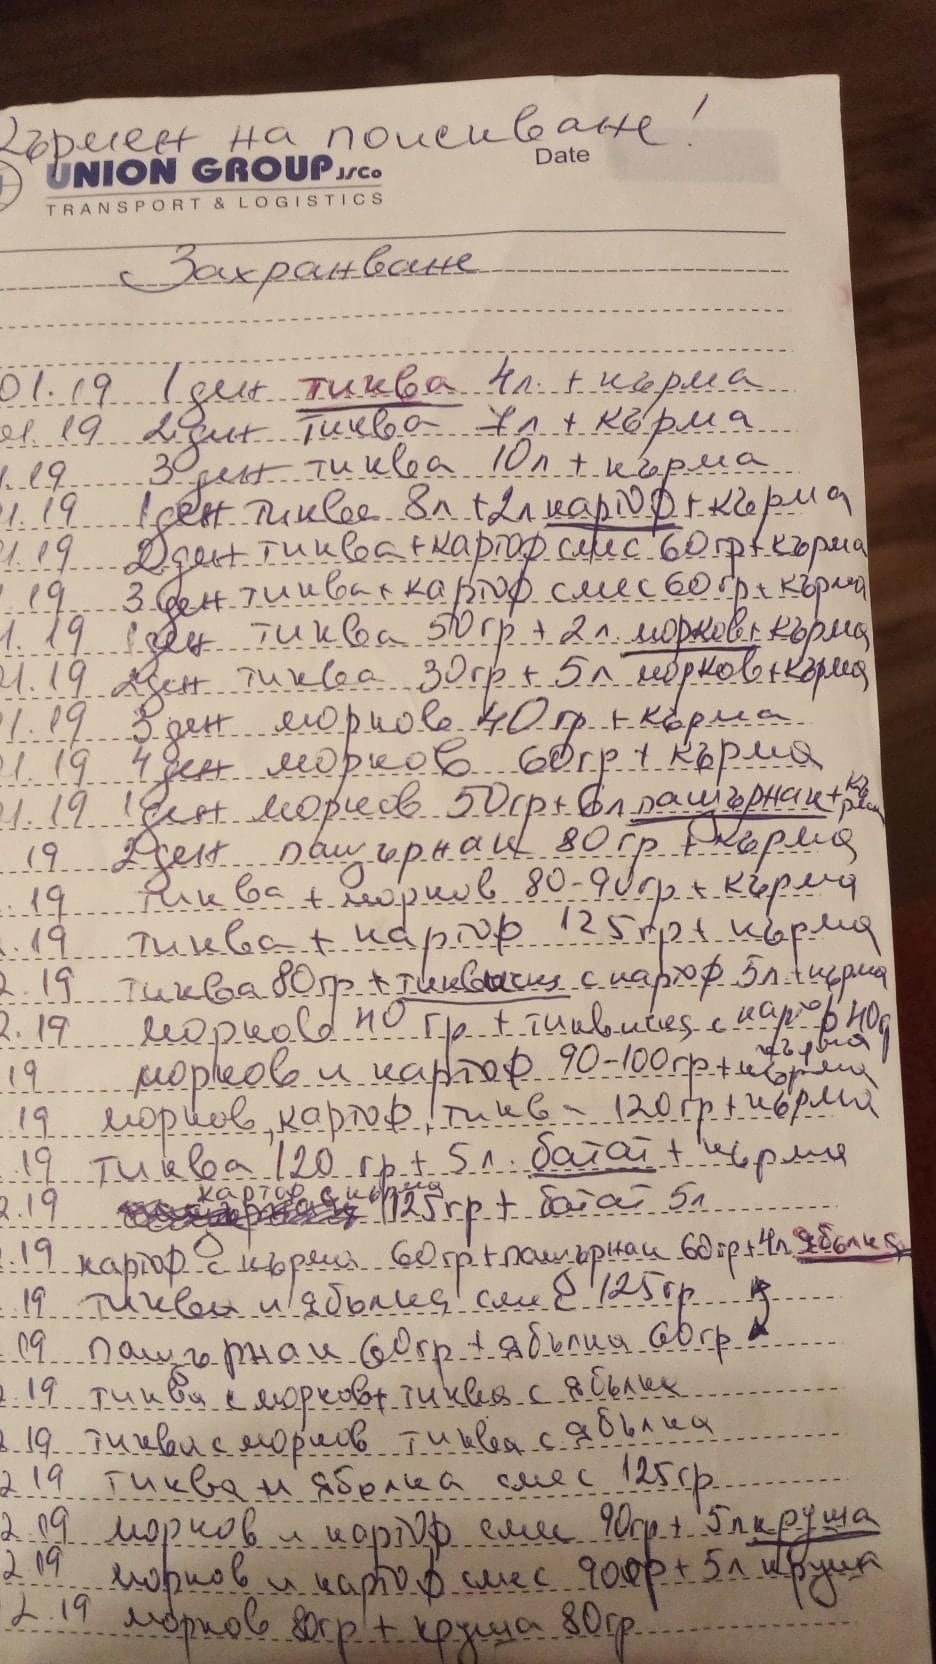 Кърмен на поискване!
UNION GROUP JSCo
Date
TRANSPORT & LOGISTICS
Захранване
01.19 1 ден тиква 4л. + кърма
01.19 2 ден тиква 7л + кърма
1.19 3 ден тиква 10л + кърма
01.19 1 ден тиква 8л + 2л картоф + кърма
1.19 2 ден тиква + картоф смес 60гр + кърма
1.19 3 ден тиква + картоф смес 60гр + кърма
1.19 1 ден тиква 50гр + 2л. морков + кърма
01.19 2 ден тиква 30гр + 5л морков + кърма
01.19 3 ден морков 40гр + кърма
01.19 4 ден морков 60гр + кърма
01.19 1 ден морков 50гр + 6л пащърнак + кърма
.19 2 ден пащърнак 80гр + кърма
.19 тиква + морков 80-90гр + кърма
.19 тиква + картоф 125гр + кърма
2.19 тиква 80гр + тиквичка с картоф 5л. + кърма
2.19 морков 40 гр + тиквичка с картоф 40г
кърма
19 морков и картоф 90-100гр + кърма
.19 морков, картоф, тикв - 120гр + кърма
.19 тиква 120 гр + 5л. батат + кърма
2.19 картоф с кърма 125гр + батат 5л
.19 картоф с кърма 60гр + пащърнак 60гр + 4л ябълка
.19 тиква и ябълка смес 125гр
.19 пащърнак 60гр + ябълка 60гр
2.19 тиква с морков + тиква с ябълка
2.19 тиква с морков тиква с ябълка
2.19 тиква и ябълка смес 125гр
2.19 морков и картоф смес 90гр + 5л круша
2.19 морков и картоф смес 90гр + 5л круша
2.19 морков 80гр + круша 80гр